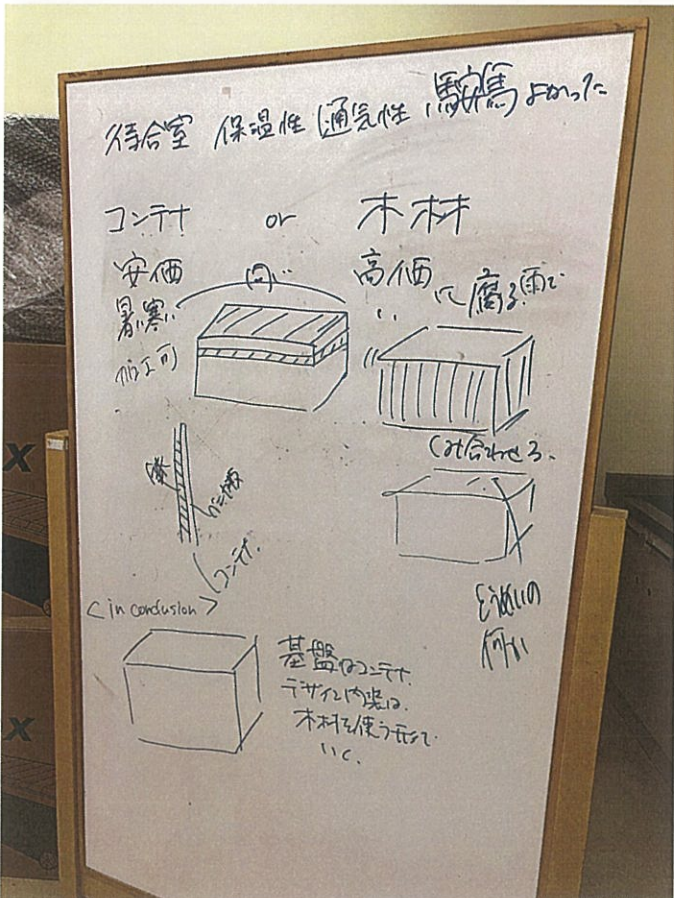 待合室 保温性 通気性 よかった
コンテナ or 木材
安価
暑い寒い
加工可
高価
腐る雨で
組み合わせる.
コンテナ.
とうめいの
何か
<in conclusion>
基盤はコンテナ.
デザイン内装は.
木材を使う形で
いく.
X
X